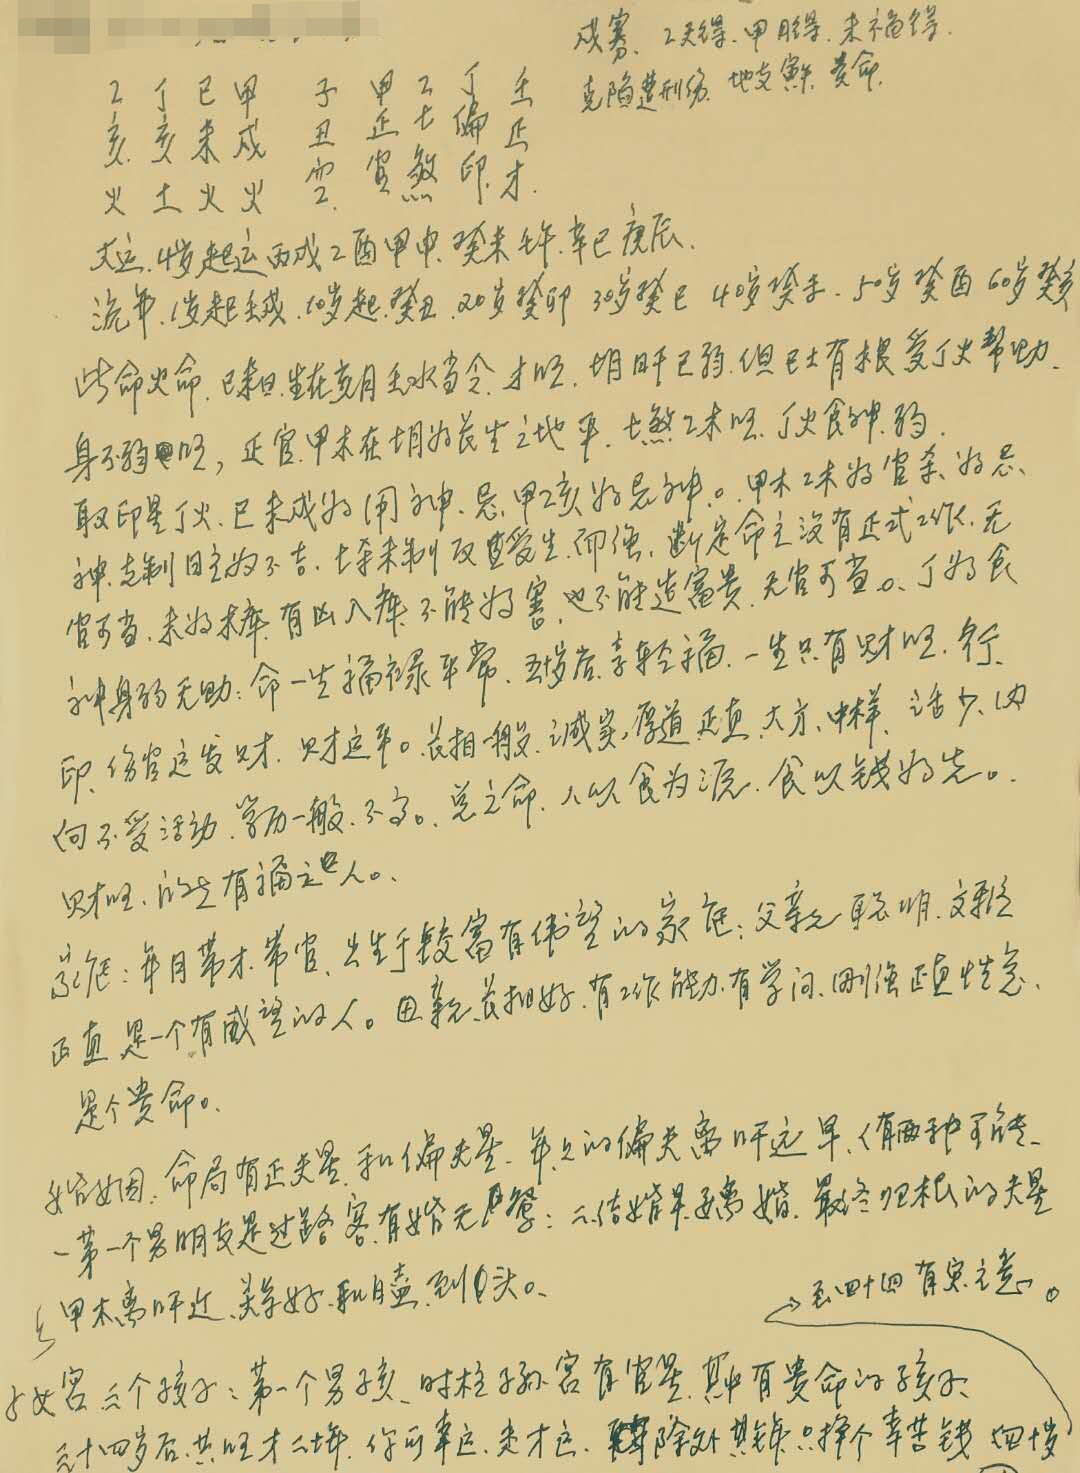 成寡、乙天得、甲月得、未福得、
克陷遭刑伤、地支寡、贵命、
乙 丁 已 甲 子 甲 乙 丁 壬
亥 亥 未 戌 丑 正 七 偏 正
火 土 火 火 空 官 煞 印 才
大运、4岁起运丙戌乙酉甲申、癸未壬午、辛已庚辰、
流年、1岁起壬戌、10岁起、癸丑、20岁癸卯 30岁癸已 40岁癸未、50岁癸酉 60岁癸亥
此命火命、已未日、生在亥月壬水当令、才旺、日干已弱、但已土有根受丁火帮助、
身不弱旺，正官甲木在月为长生之地平、七煞乙木旺、丁火食神弱、
取印星丁火、已未戌为用神、忌甲乙亥为忌神。甲木乙木为官杀、为忌、
神、克制日主为不吉、七杀未制反受生、而强、断定命主没有正式工作、无
官可当、未为木库、有凶入库、不能为害、也不能造富贵、无官可当。丁为食
神身弱无助：命一生福禄平常、五十岁后、享轻福、一生只有财旺、行、
印、伤官运发财、财运平。长相一般、诚实、厚道正直、大方、中样、话少、内
向不爱活动、学历一般、不高。总之命、人以食为源、食以钱为先。
财旺、的是有福之人。
家庭：年月带才、带官、出生于较富有伟望的家庭：父亲聪明、文雅
正直 是一个有威望的人。母亲长相好、有工作能力、有学问、刚强正直性急、
是个贵命。
婚姻：命局有正夫星、和偏夫星、年上的偏夫离日干远早、有两种可能、
一第一个男朋友是过路客、有婚无：二结婚早离婚、最终归根的夫星
是甲木离日干近、关系好、和睦、到白头。
到四十四有灾之意。
子女宫三个孩子：第一个男孩、时柱子孙宫有官星、其中有贵命的孩子、
三十四岁后、共旺才二十年、你可幸运、走才运、除外其年、只挣个辛苦钱 四十岁